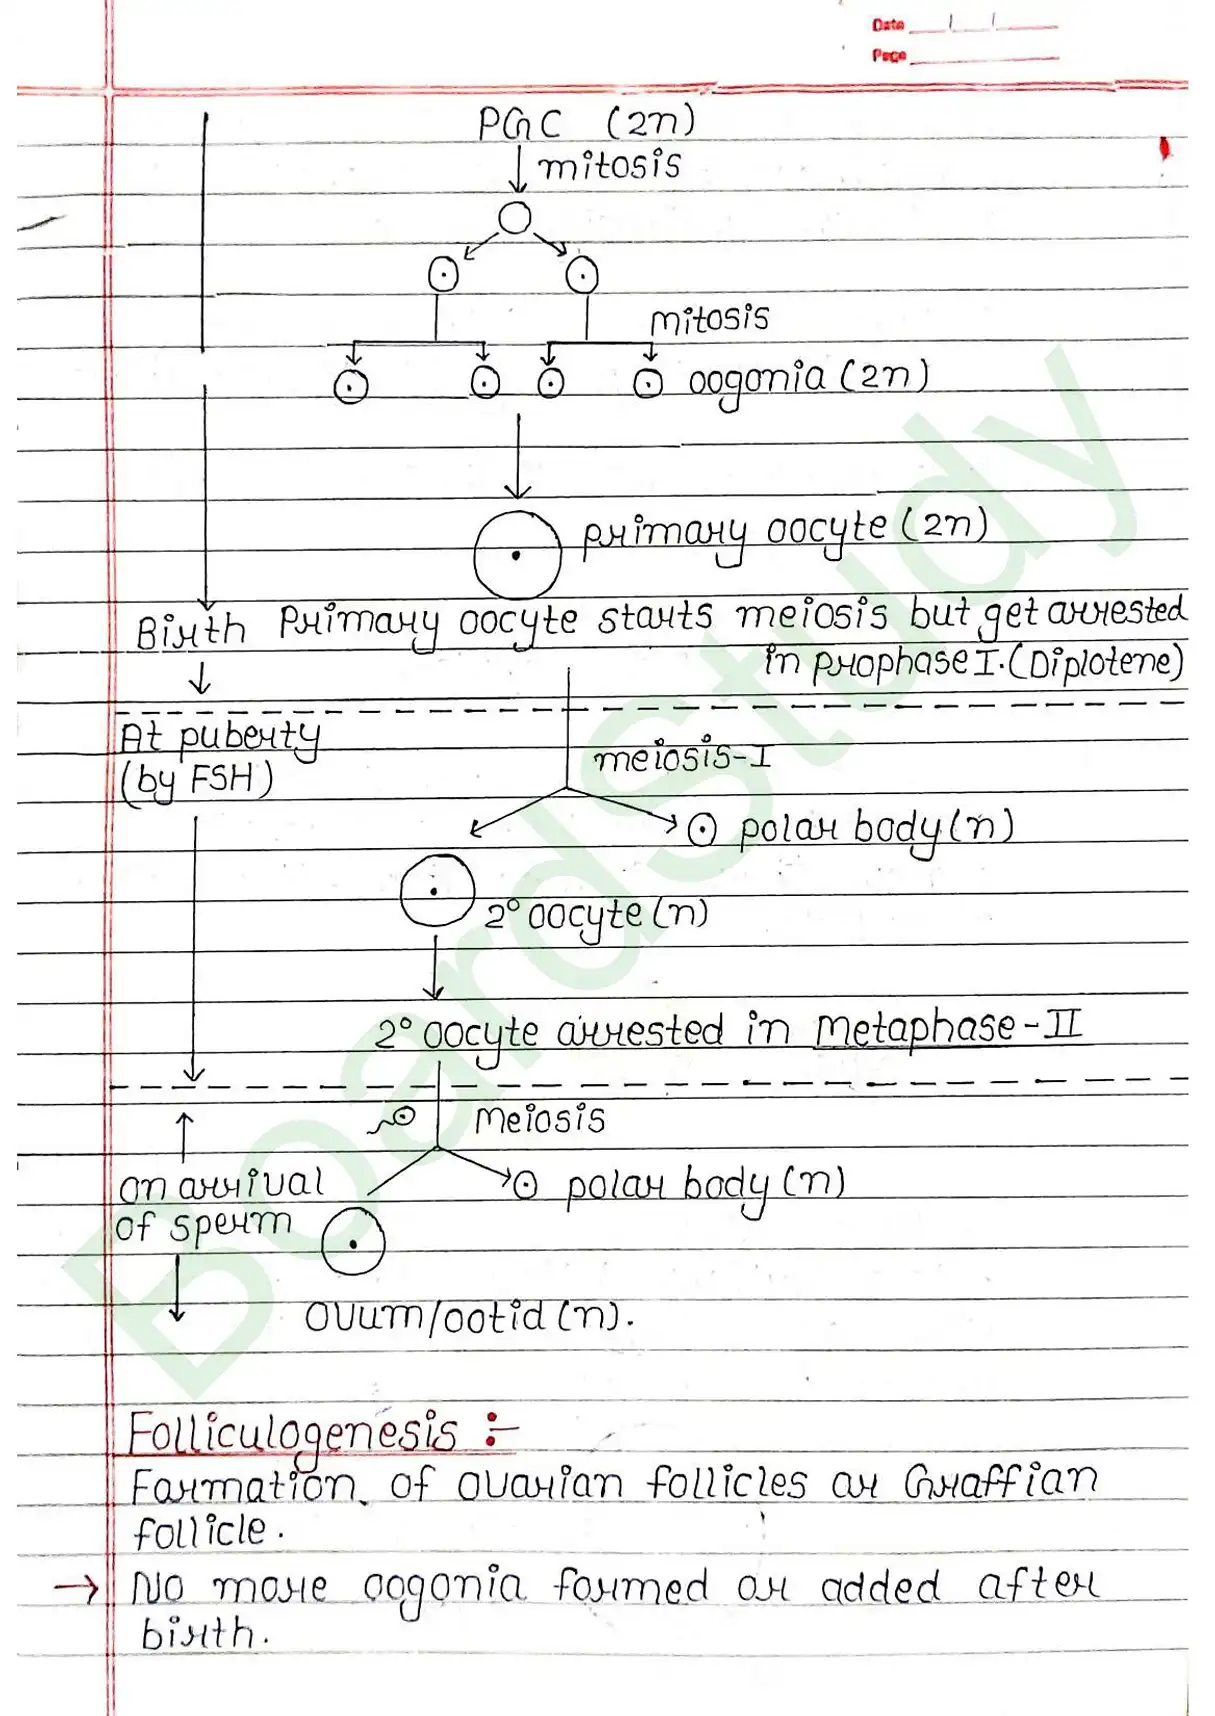 Date
Page
PGC (2n)
mitosis
mitosis
oogonia (2n)
primary oocyte (2n)
Birth Primary oocyte starts meiosis but get arrested
in prophase I. (Diplotene)
At puberty
(by FSH)
meiosis-I
polar body (n)
2° oocyte (n)
2° oocyte arrested in Metaphase-II
Meiosis
on arrival
of sperm
polar body (n)
Ovum/ootid (n).
Folliculogenesis :-
Formation of ovarian follicles or Graffian
follicle.
→ No more oogonia formed or added after
birth.
BoardStudy